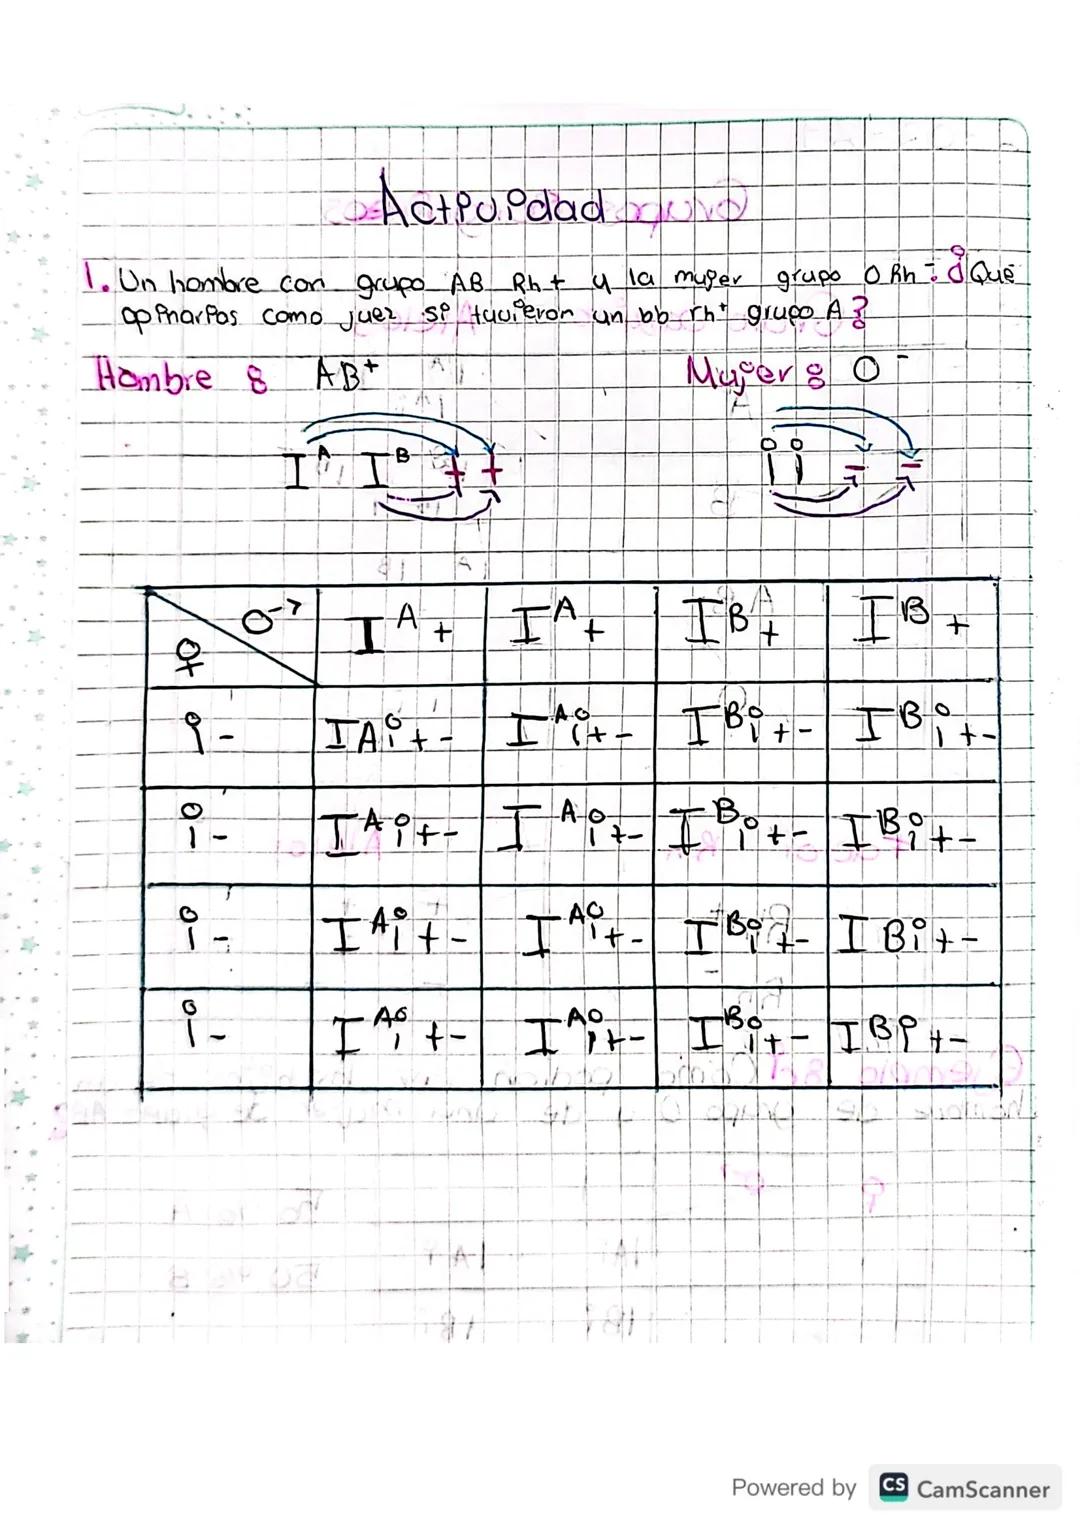 Actividad
1. Un hombre con grupo AB Rh+ y la mujer grupo O Rh-: ¿Que
opinarias como juez si tuvieron un bb rh+ grupo A?
Hombre : AB+ Mujer : O-
I^A I^B + + i i - -
♀ ♂ I^A + I^A + I^B + I^B +
i - I^A i + - I^A i + - I^B i + - I^B i + -
i - I^A i + - I^A i + - I^B i + - I^B i + -
i - I^A i + - I^A i + - I^B i + - I^B i + -
i - I^A i + - I^A i + - I^B i + - I^B i + -
Powered by CS CamScanner